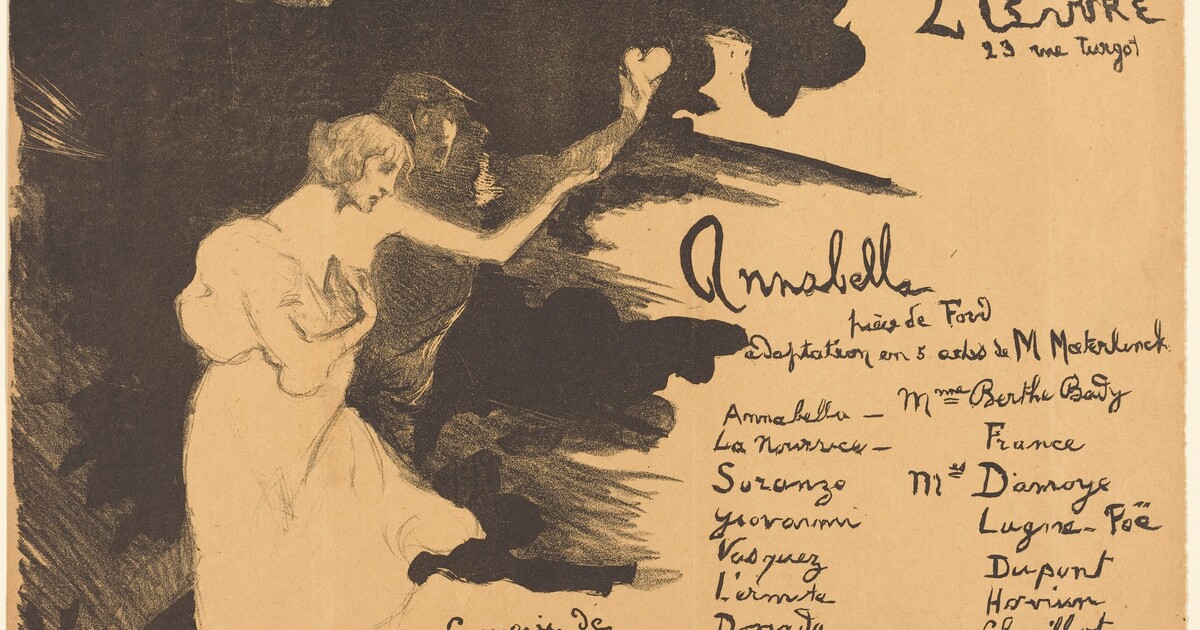 L'ŒUVRE
23 rue Turgot
Annabella
pièce de Ford
adaptation en 5 actes de M Mæterlinck
Annabella — Mme Berthe Bady
La Nourrice — France
Soranzo Mes Damoye
Giovanni Lugne-Poë
Vasquez Dupont
L'ermite
Donado